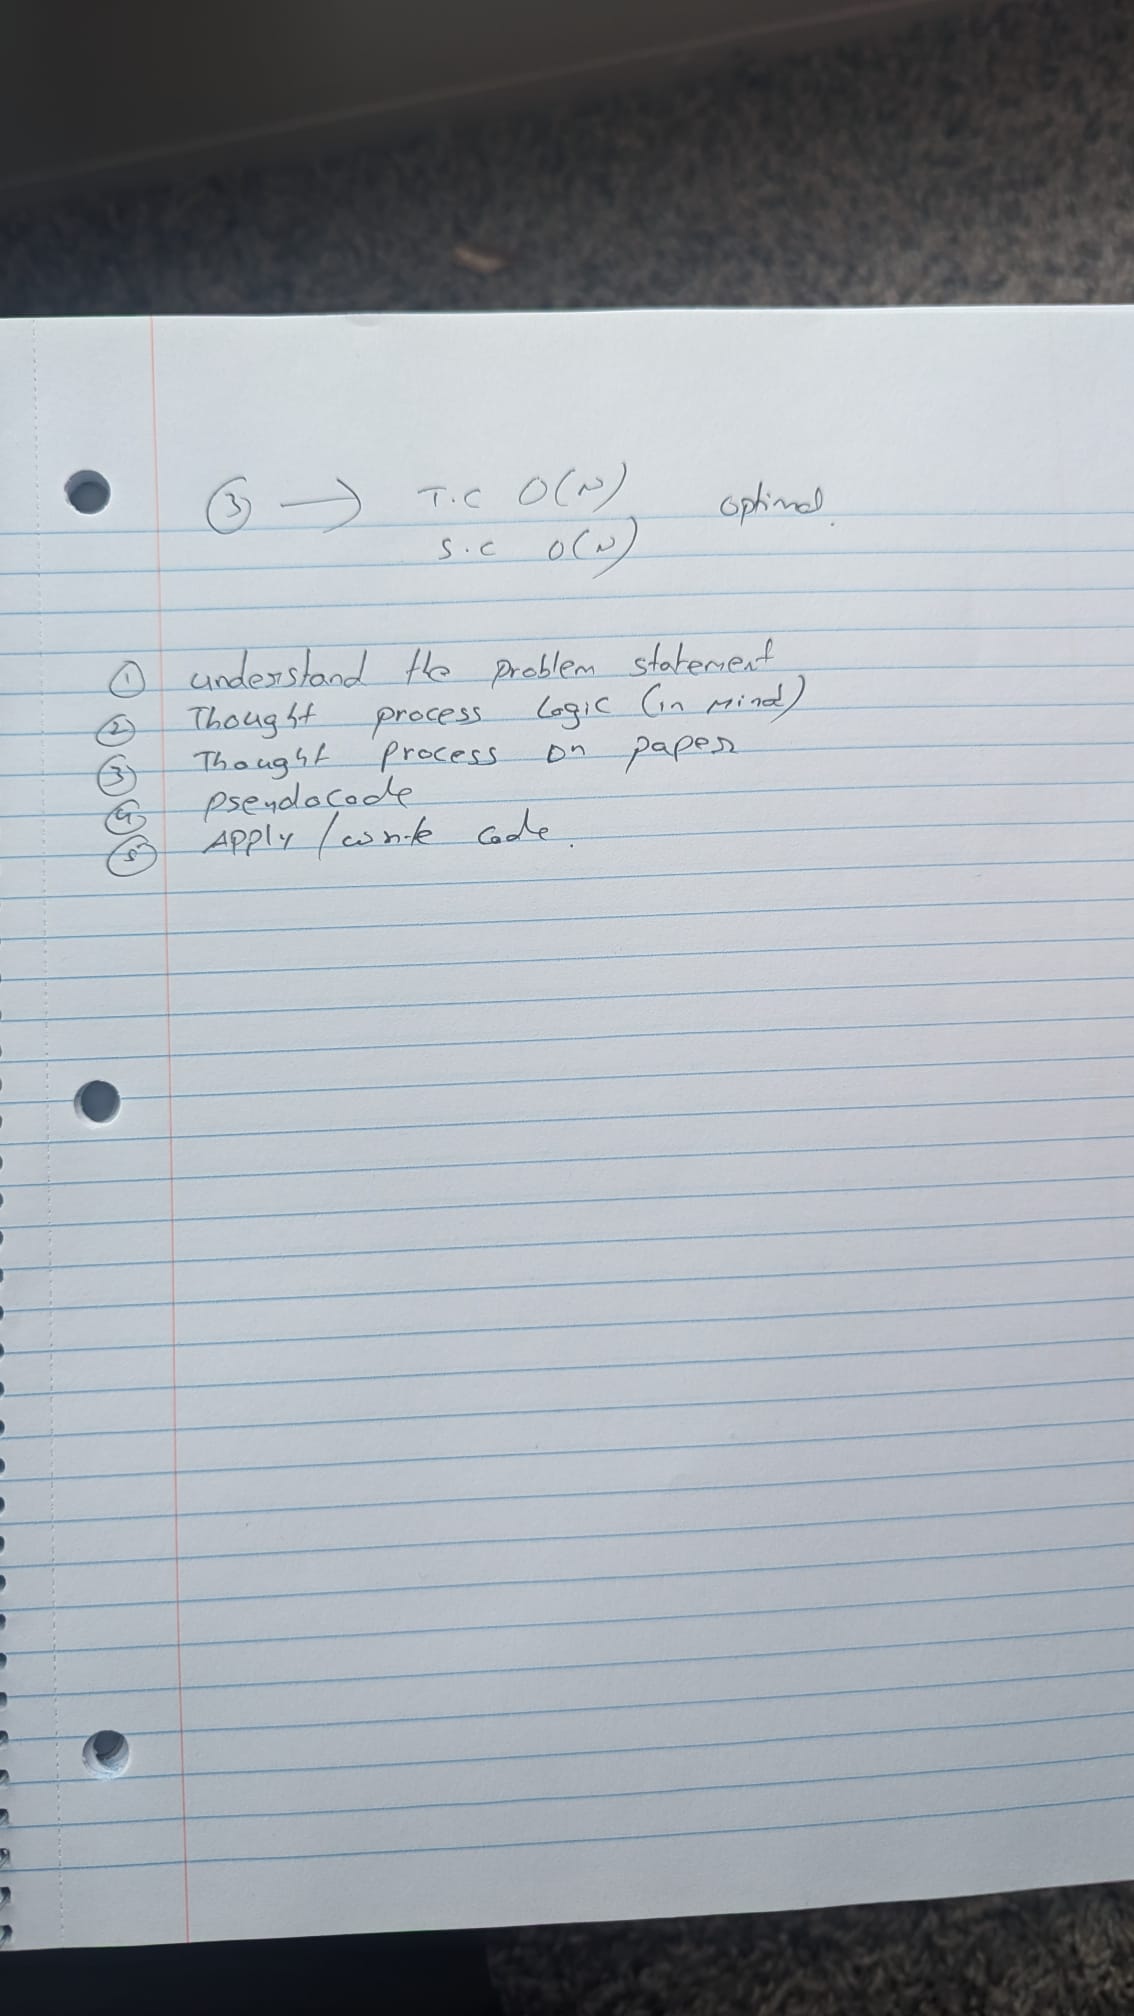 ③ → T.C O(N) optimal.
S.C O(N)
① understand the problem statement
② Thought process logic (in mind)
③ Thought process on paper
④ pseudocode
⑤ Apply / write code.